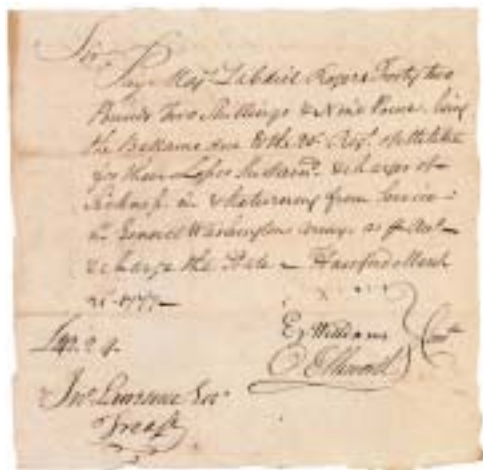 Sir
Pay Maj.^r Zabdiel Rogers Forty two
Pounds Two Shillings & Nine Pence being
the Ballance due to the 20.^th Reg.^t of Militia
for their Losses Sustain.^d & charges of
Sickness in & Returning from Service
in General Washingtons Army as
& charge the State Hartford March
1777
£42. 2. 9.
Ez Williams
O Ellsworth
Jn.^o Lawrence Esq.^r
Treas.^r